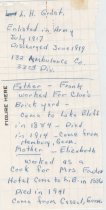 L. H. Godat.
Enlisted in Army
July 1917
Discharged June 1919
132 Ambulance Co.
33rd Div.
Father - Frank
worked for Clow's
Brick yard -
came to
in 1884 - Died
in 1914. Came from
Hamburg, Germ.
Mother - Elizabeth
worked as a
Cook for Mrs.
Hotel came to in
Died in 1941
Came from Cassel, Germ.
FIGURE HERE